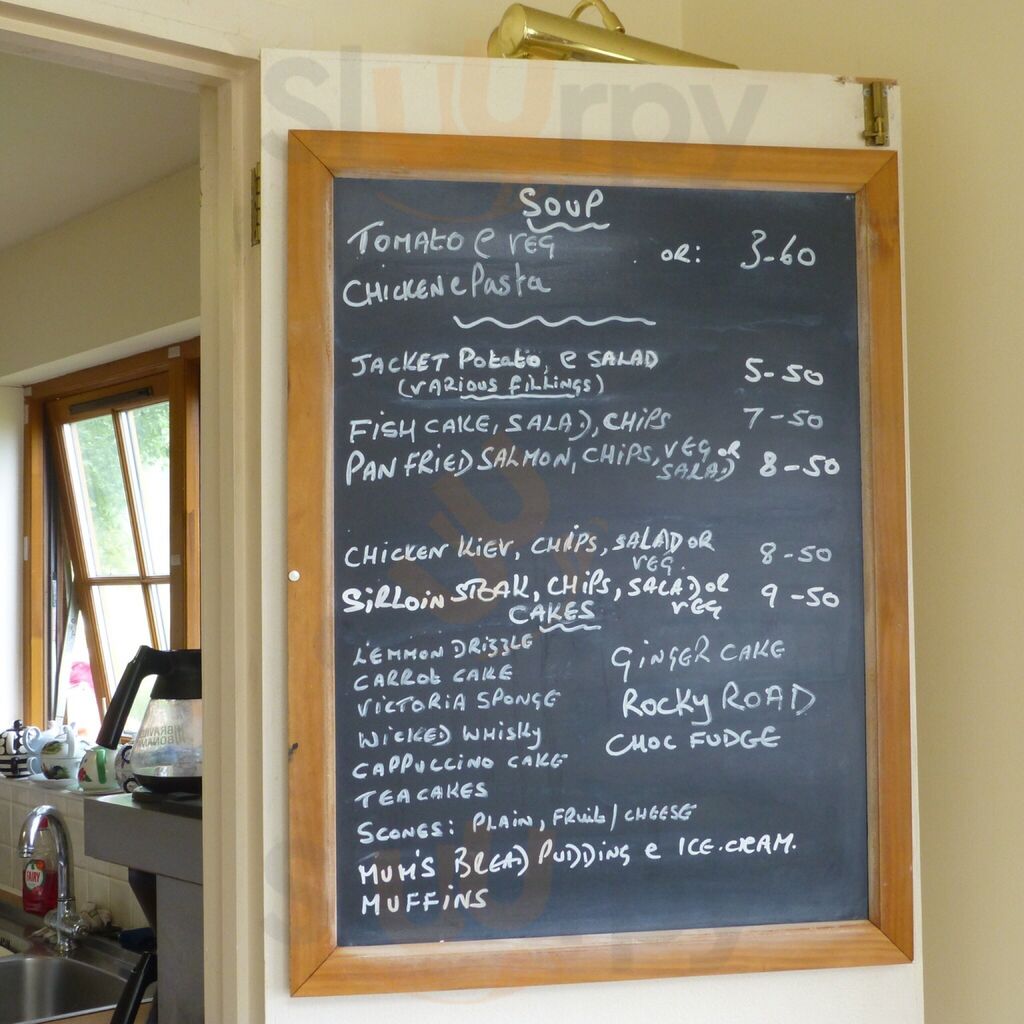 Sluurpy
SOUP
TOMATO e VEG OR: 3-60
CHICKEN e Pasta
JACKET Potato, e SALAD 5-50
(VARIOUS FILLINGS)
FISH CAKE, SALAD, CHIPS 7-50
PAN FRIED SALMON, CHIPS, VEG OR SALAD 8-50
CHICKEN KIEV, CHIPS, SALAD OR VEG. 8-50
SIRLOIN STEAK, CHIPS, SALAD OR VEG 9-50
CAKES
LEMMON DRIZZLE
CARROT CAKE
VICTORIA SPONGE
WICKED WHISKY
CAPPUCCINO CAKE
TEACAKES
GINGER CAKE
ROCKY ROAD
CHOC FUDGE
SCONES: PLAIN, FRUIT/CHEESE
MUM'S BREAD PUDDING e ICE.CREAM.
MUFFINS
FAIRY